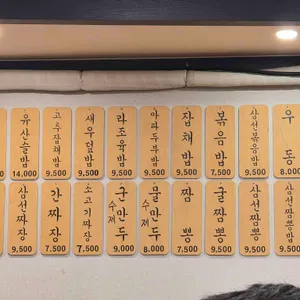 유산슬밥
14.000
고추잡채밥
9.500
새우덮밥
9.500
라조육밥
9.500
마라두부밥
9.500
잡채밥
7.500
볶음밥
7.500
삼선볶음밥
9.500
우동
8.000
삼선짜장
9.500
간짜장
7.500
소고기짜장
7.500
수제
군만두
9.000
수제
물만두
8.000
짬뽕
7.500
굴짬뽕
9.500
삼선짬뽕
9.500
삼선짬뽕밥
9.500